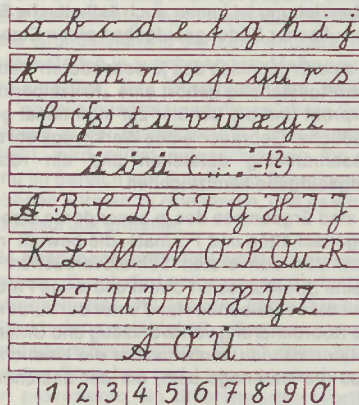 a b c d e f g h i j
k l m n o p qu r s
ß (ʃs) t u v w x y z
ä ö ü (.,:;„"-!?)
A B C D E F G H I J
K L M N O P Qu R
S T U V W X Y Z
Ä Ö Ü
1 2 3 4 5 6 7 8 9 0